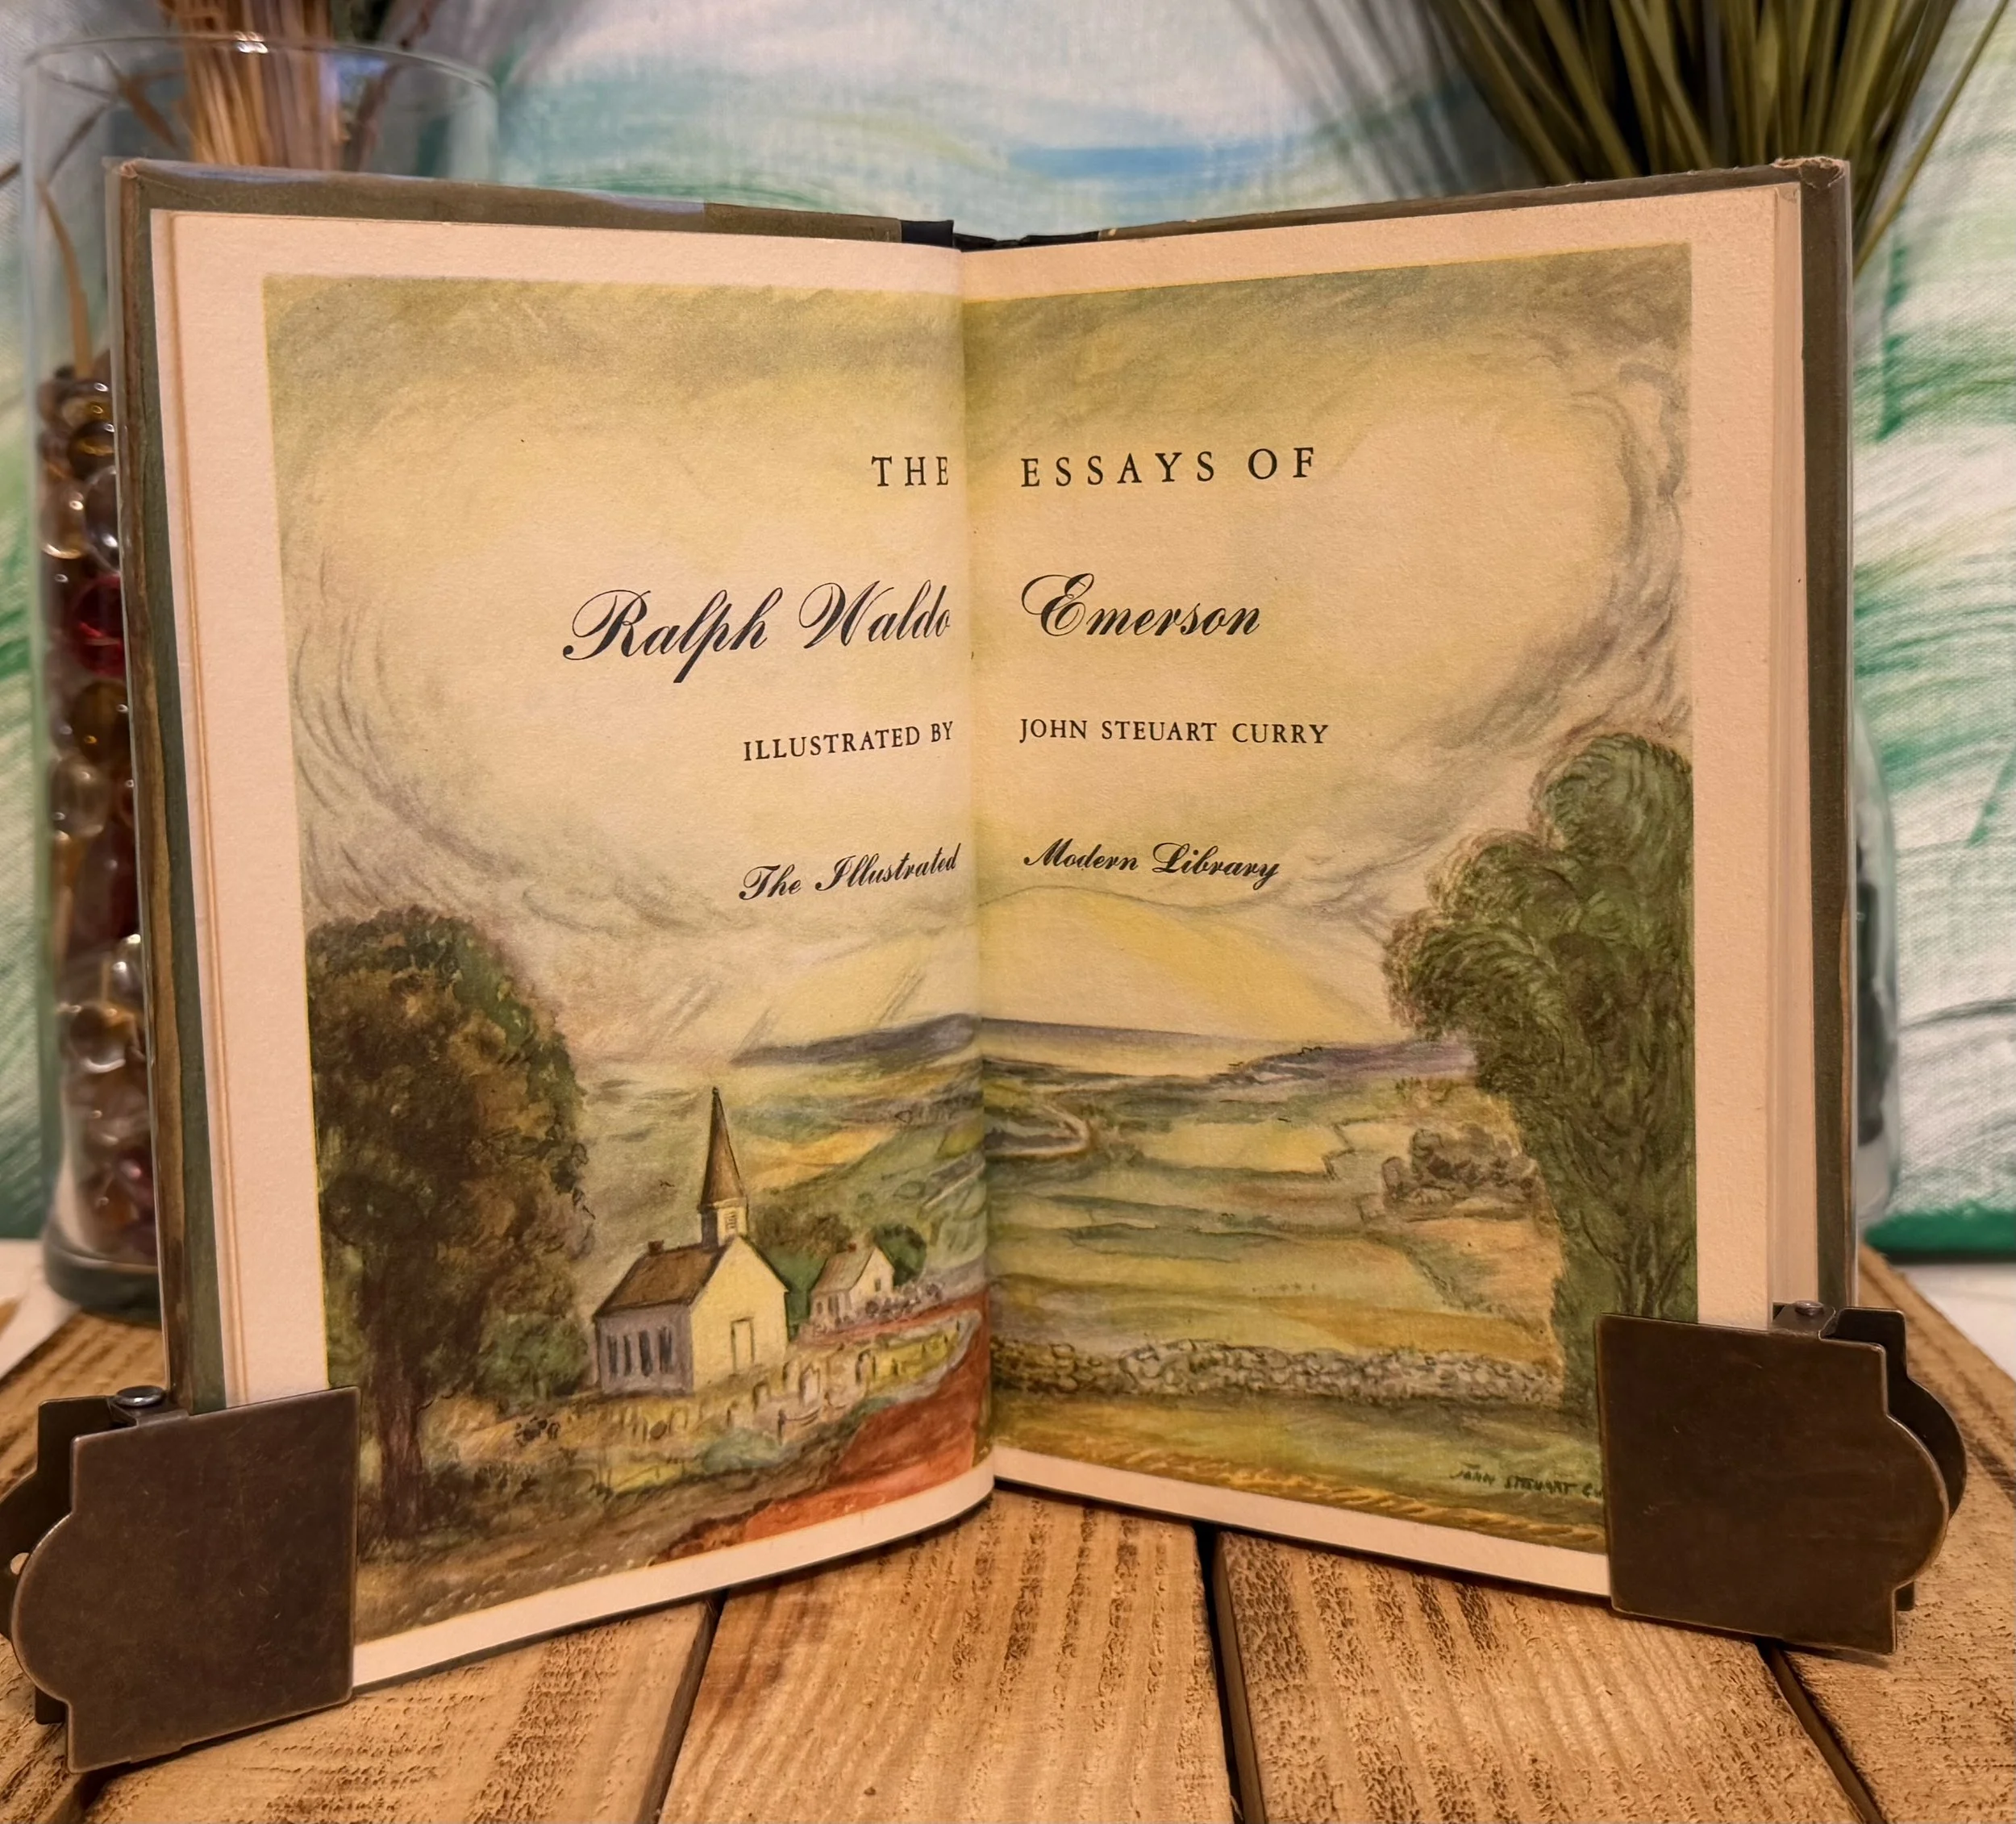 THE ESSAYS OF
Ralph Waldo Emerson
ILLUSTRATED BY JOHN STEUART CURRY
The Illustrated Modern Library
JOHN STEUART